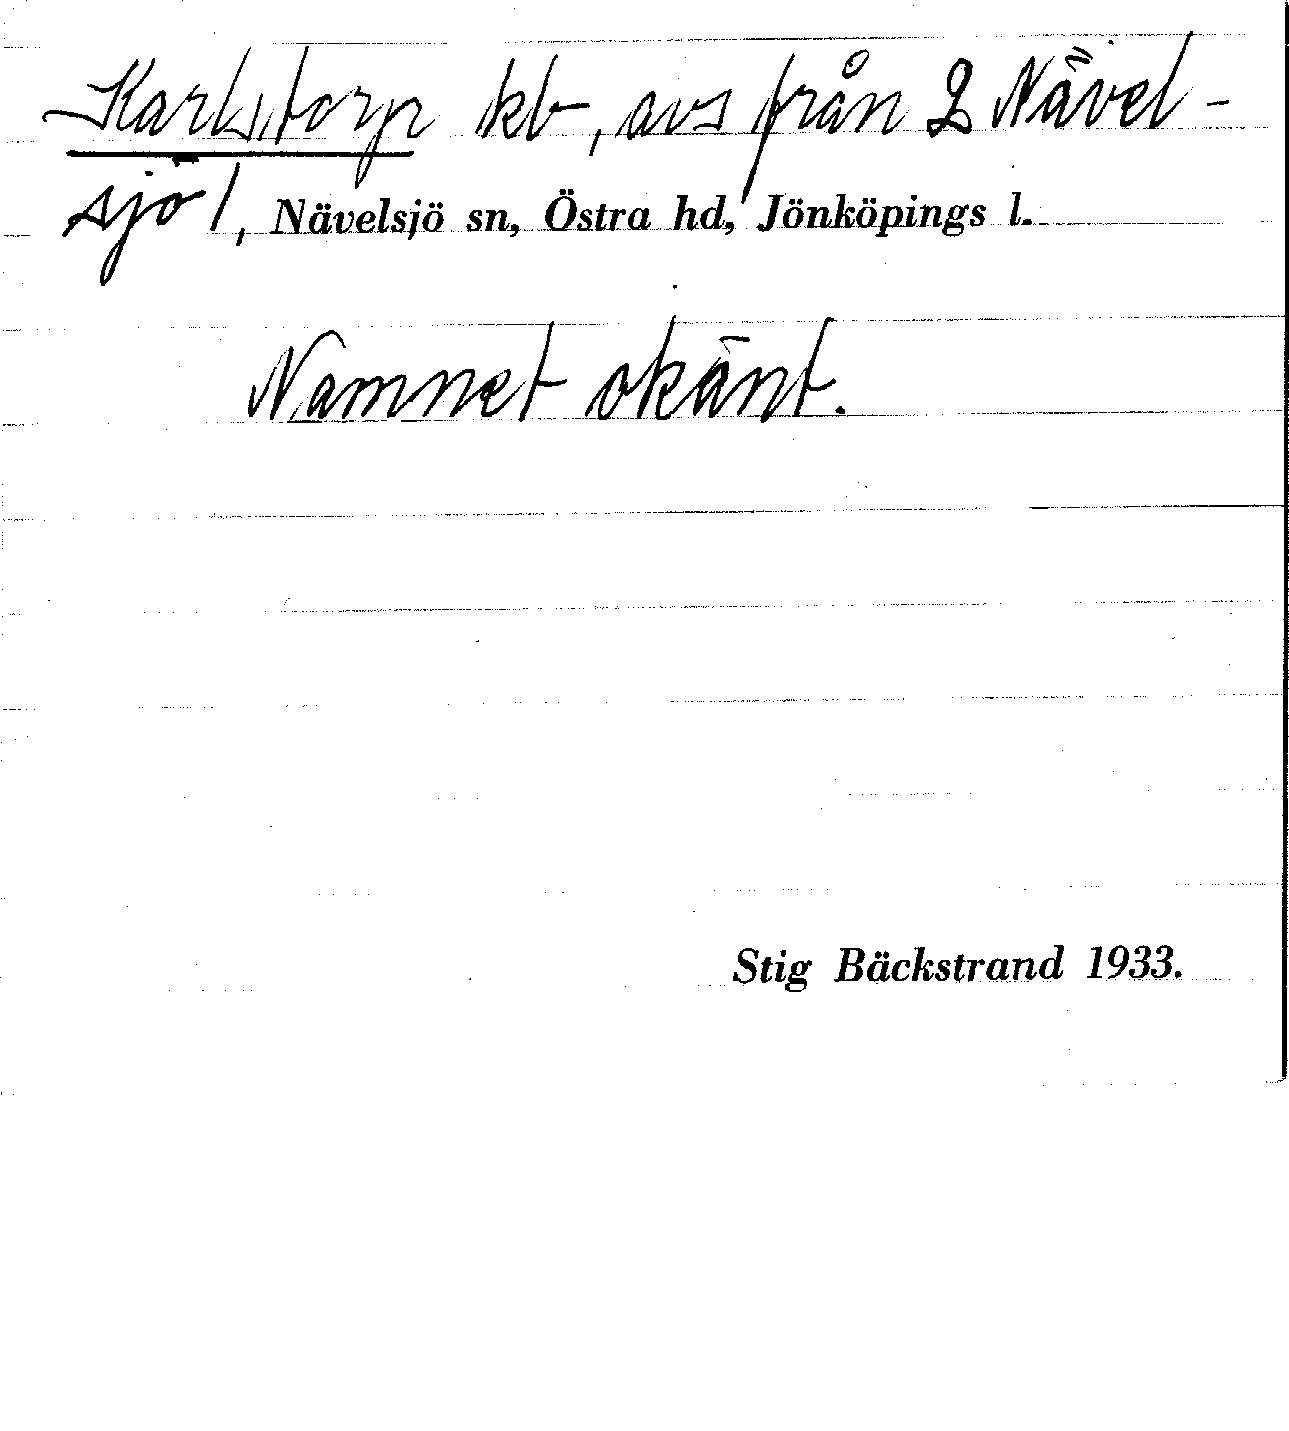 Karlstorp kb, avs från 2 Nävel-
sjö 1, Nävelsjö sn, Östra hd, Jönköpings l.
Namnet okänt.
Stig Bäckstrand 1933.